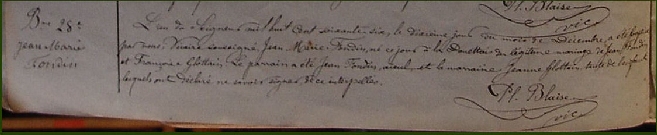 Ph. Blaise
vic
Bme 28e
Jean Marie
Fondin
L'an de Seigneur mil huit cent soixante six, le dixième jour du mois de Décembre, a été baptisé
par nous, Vicaire soussigné, Jean Marie Fondin, né ce jour à la du légitime mariage de Jean Fondin
et Françoise Glottain. Le parrain a été Jean Fondin, aïeul et la marraine Jeanne Glottain, tante de
lesquels ont déclaré ne savoir signer, de ce interpellés.
Ph. Blaise
vic